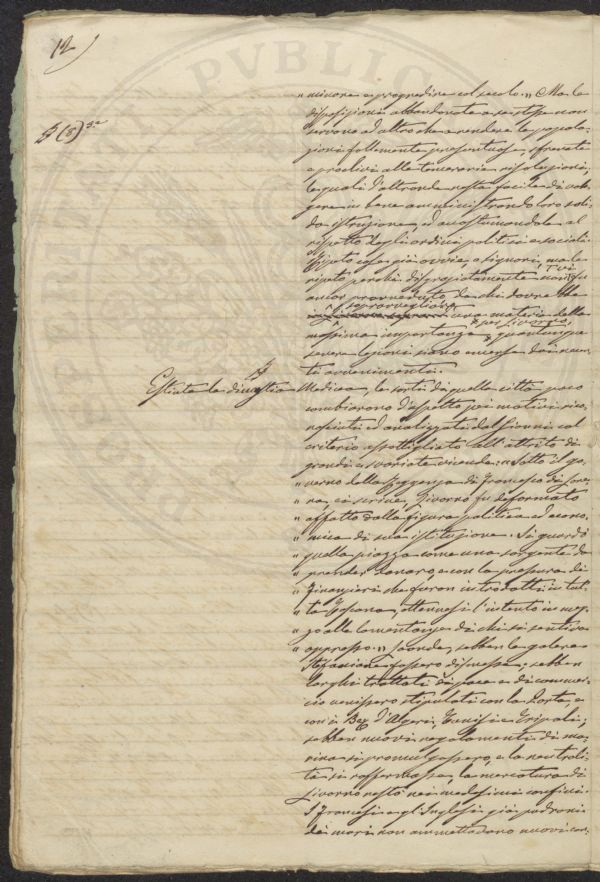 12)
§ (8) 3.a
" minore e progredire col secolo." Ma le
disposizioni abbandonate a se stesse non
servono ad altro che a rendere le popola-
zioni follemente presontuose, sfrenate
e proclivi alle temerarie risoluzioni,
le quali d'altronde resta facile di vol-
gere in bene amministrando loro soli-
da istruzione, ed accostumandole al
rispetto degli ordini politici e sociali.
cose già ovvie, o signori, ma le
ripeto perchè disgraziatamente non fu
ancor provveduto da chi dovrebbe
sopravvegliare una materia della
massima importanza per Livorno, quantunque
severe lezioni siano emerse dai
avvenimenti.
Estinta la dinastia Medicea, le sorti di quella città poco
cambiarono d'aspetto pei motivi rico-
nosciuti ed analizzati dal Gianni col
criterio assottigliato all'attrito di
grandi e svariate vicende: "Sotto il go-
" verno della Reggenza di Francesco di Lore-
" na, ei scrive, Livorno fu deformato
" affatto dalla figura politica ed econo-
" mica di sua istituzione. Si guardò
" quella piazza come una sorgente da
" prender denaro, e con la pressura di
" Finanzieri che furon introdotti in tut-
" ta Toscana, ottennesi l'intento in mez-
" zo alle lamentanze di chi si sentiva
" oppresso." Laonde, sebben le galere
Stefaniane fossero dismesse; sebben
larghi trattati di pace e di commer-
cio venissero stipulati con la Porta, e
con i Bey d'Algeri, Tunisi e Tripoli;
sebben nuovi regolamenti di ma-
rina si promulgassero, e la neutrali-
tà si raffermasse, la mercatura di
Livorno restò nei medesimi confini.
I Francesi e gl'Inglesi già padroni
dei mari non ammettevano nuovi con-